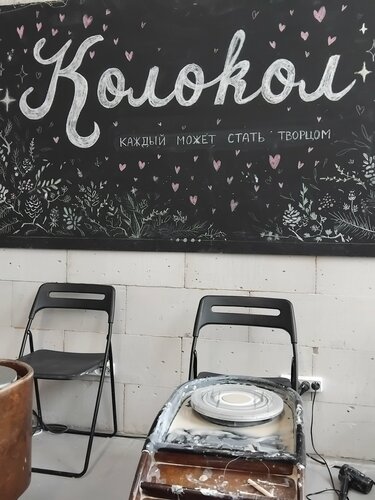 Колокол
КАЖДЫЙ МОЖЕТ СТАТЬ ТВОРЦОМ